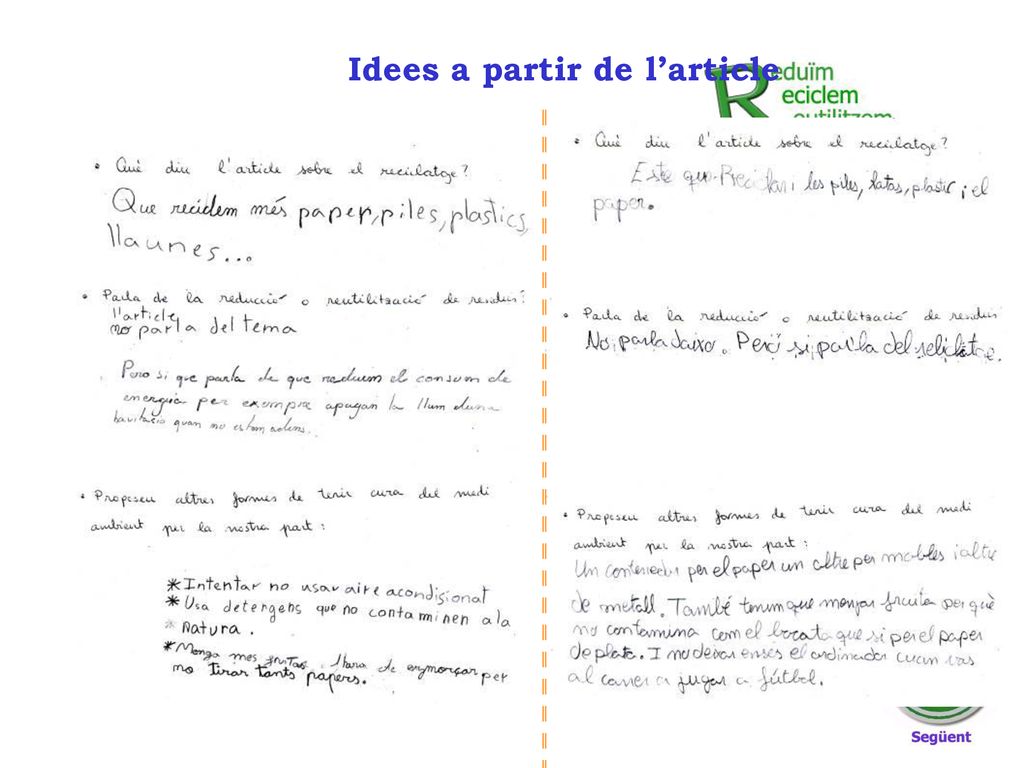 Idees a partir de l'article
Reduïm
eciclem
• Què diu l'article sobre el reciclatge?
Que reciclem més paper, piles, plastics,
llaunes...
• Parla de la reducció o reutilització de residus?
l'article
no parla del tema
Pero si que parla de que reduim el consum de
energia per exempre apagan la llum duna
havitacio quan no estem adens.
• Proposeu altres formes de tenir cura del medi
ambient per la nostra part:
* Intentar no usar aire acondisional
* Usa detergens que no contaminen a la
* Natura.
* Monga mes frutas llara de esmorçar per
no tirar tants papers.
• Què diu l'article sobre el reciclatge?
Este que Reciclar, les piles, latas, plastic i el
paper.
• Parla de la reducció o reutilització de residus
No parla daixo. Però si parla del reliclatge.
• Proposeu altres formes de tenir cura del medi
ambient per la nostra part:
Un contenedor per el paper un altre per mobles i altre
de metall. També tenim que monjar fruita per què
no contamina com el bocata que si per el paper
de plata. I no deixar enses el ordinador cuan vas
al carrer a jugar a fútbol.
Següent